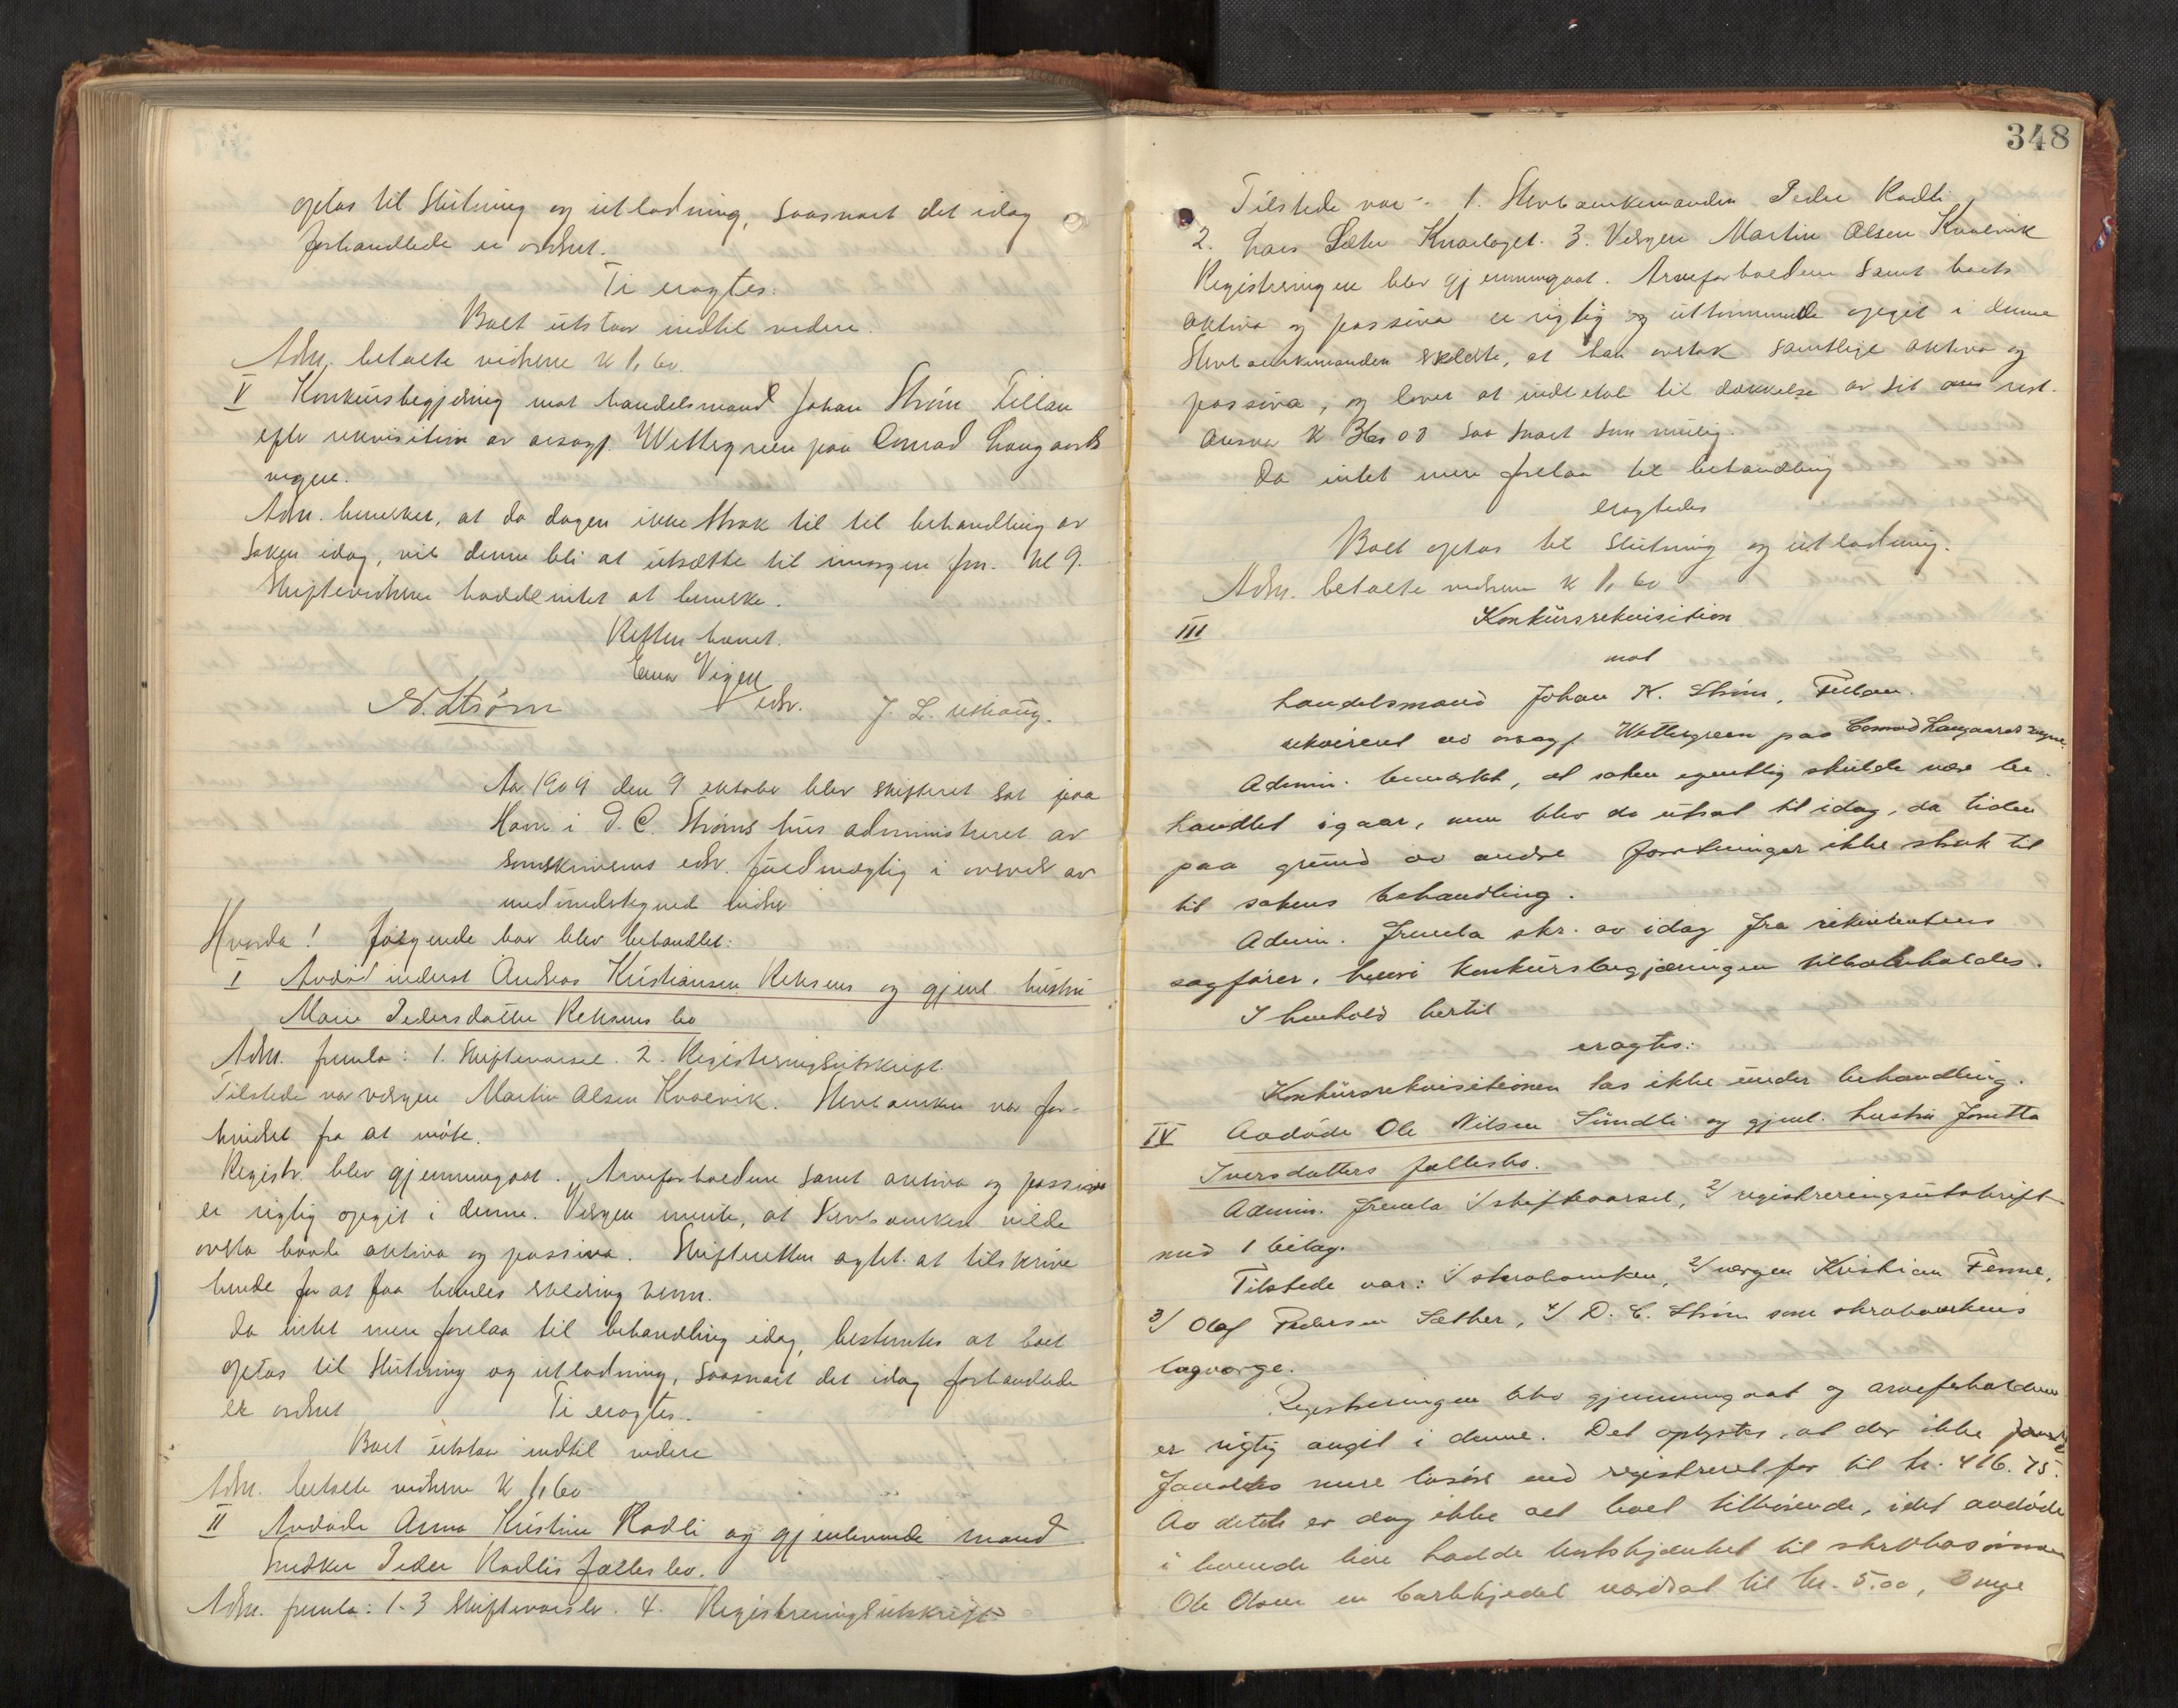 optas til Slutning og utlodning, saasnart det idag
forhandlede er ordnet.
Ti eragtes:
Boet utstaar indtil videre.
Adm. betalte vidnerne k 1,60.
V Konkursbegjæring mot handelsmand Johan Strøm Fillan
efter rekvisition av orsagf. Wettergreen paa Conrad Langaards
vegne.
Adm. bemerket, at da dagen ikke strak til til behandling av
saken idag, vil denne bli at utsætte til imorgen fm. kl 9.
Skiftevidnerne hadde intet at bemerke.
Retten hævet.
Einar Vigen
N. Strøm edsv. J. L. Ulshaug.
Aar 1909 den 9 oktober blev skifteret sat paa
Havn i D. C. Strøms hus administreret av
sorenskriverens edsv. fuldmægtig i overvær av
medundertegnede vidner
Hvorda! følgende bo blev behandlet:
I Avdød inderst Andreas Kristiansen Reksens og gjenl. hustru
Marie Pedersdatter Reksens bo
Adm. fremla: 1. Skiftevarsel. 2. Registreringsutskrift.
Tilstede var vergen Martin Olsen Kvalvik. Stervboenken var for-
hindret fra at møte.
Registr. blev gjennemgaat. Arveforholdene samt aktiva og passiva
er rigtig opgit i denne. Vergen mente, at Stervboenken vilde
overta baade aktiva og passiva. Skifteretten agtet at tilskrive
hende for at faa hendes erklæring herom.
Da intet mere forelaa til behandling idag, bestemtes at boet
optas til Slutning og utlodning, saasnart det idag forhandlede
er ordnet Ti eragtes.
Boet utstaar indtil videre
Adm. betalte vidnerne k 1,60
II Avdøde Anna Kristine Rødli og gjenlevende mand
Snedker Peder Rødlis fællesbo.
Adm. fremla: 1-3 Skiftevarsler. 4. Registreringsutskrift
348
Tilstede var: 1. Stervboenkemanden Peder Rødli
2. Lars Sæter Knarlaget. 3. Vergen Martin Olsen Kvalvik
Registreringen blev gjennemgaat. Arveforholdene samt boets
aktiva og passiva er rigtig og uttømmende opgit i denne
Stervboenkemanden erklærte, at han overtok samtlige aktiva og
passiva, og lover at indbetale til dækkelse av sit rest-
ansvar k saa snart som mulig.
Da intet mere forelaa til behandling
eragtedes
Boet optas til slutning og utlodning.
Adm. betalte vidnerne k 1,60
III Konkursrekvisition
mot
handelsmand Johan N. Strøm, Fillan.
rekvireret av orsagf. Wettergreen paa Conrad Langaards vegne.
Admin. bemerket, at saken egentlig skulde være be-
handlet igaar, men blev da utsat til idag, da tiden
paa grund av andre forretninger ikke strak til
til sakens behandling.
Admin. fremla skr. av idag fra rekvirentens
sagfører, hvori konkursbegjæringen tilbakekaldes.
I henhold hertil
eragtes:
Konkursrekvisitionen tas ikke under behandling.
IV Avdøde Ole Nilsen Sundli og gjenl. hustru Jonetta
Iversdatters fællesbo.
Admin. fremla 1/ skiftevarsel, 2/ registreringsutskrift
med 1 bilag.
Tilstede var: 1/ stervboenken, 2/ vergen Kristian Fenne,
3/ Olaf Pedersen Sæther, 4/ D. C. Strøm som stervboenkens
lagværge.
Registreringen blev gjennemgaat og arveforholdene
er rigtig angit i denne. Det oplystes, at der ikke
fandtes mere løsøre end registreret for til kr. 416.75.
Av dette er dog ikke alt boet tilhørende, idet avdøde
i levende live hadde bortskjænket til stervbosønnen
Ole Olsen en barkkjedel værdsat til kr. 5.00, 3 nye